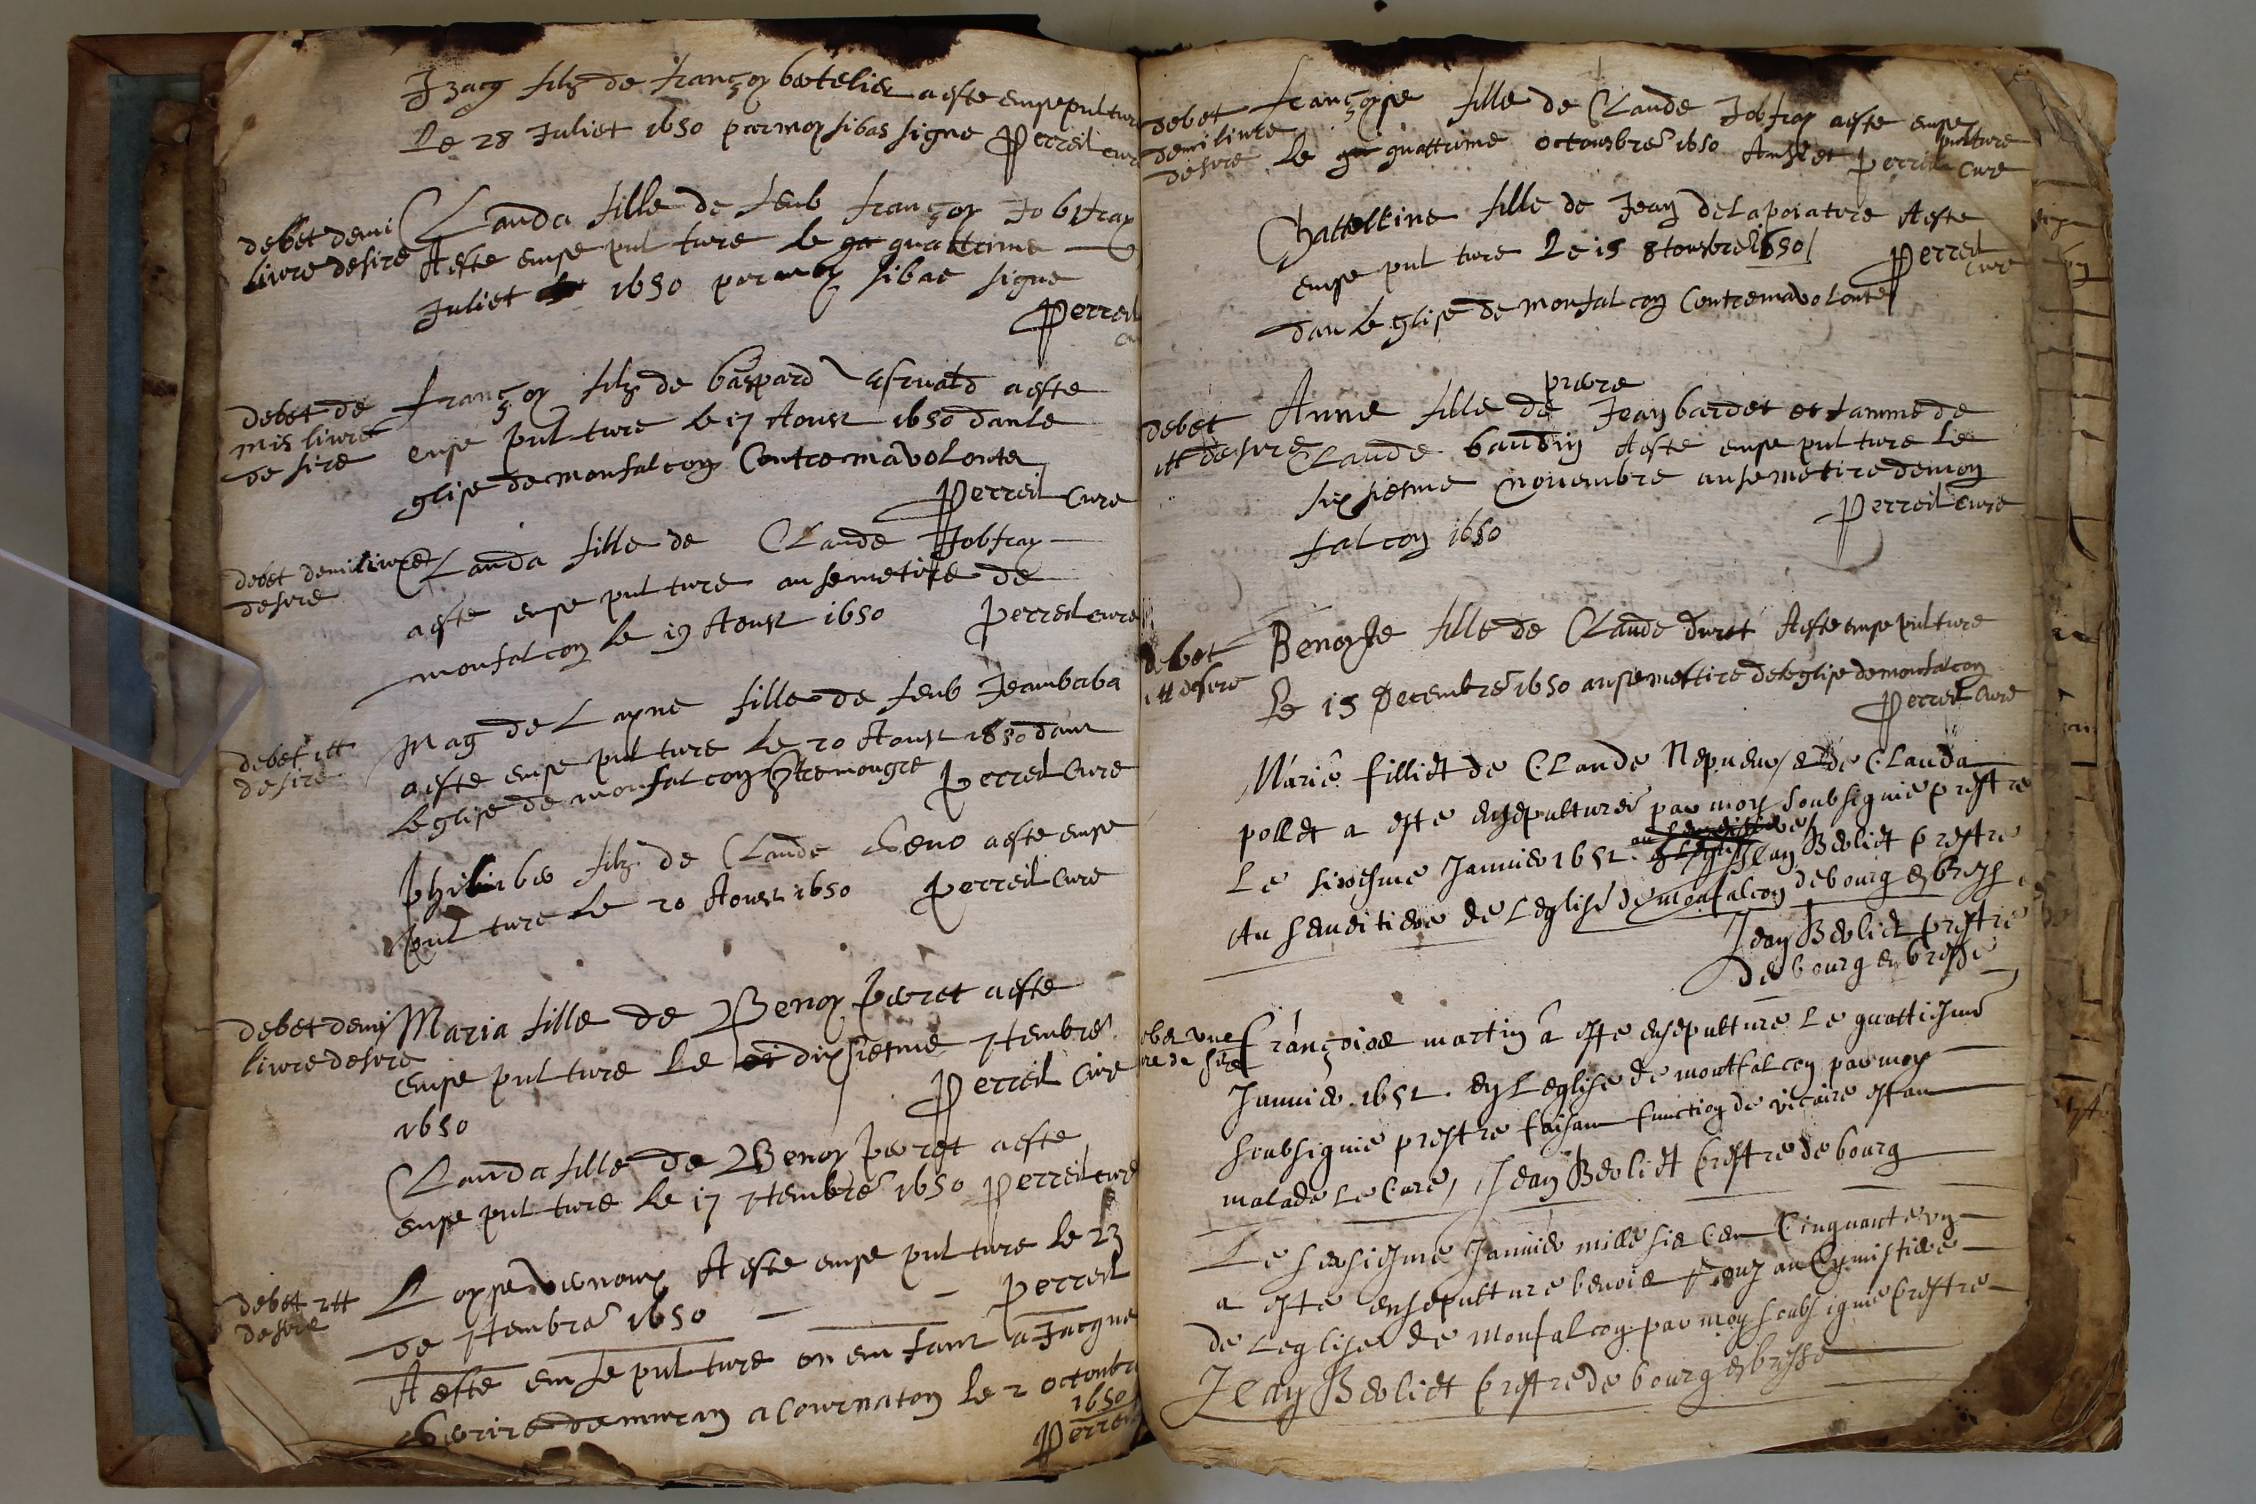 Izacq filz de françoy botelier a este ensepulture
Le 28 Juliet 1650 par moy sibas signe Perreil cure
debet demi
livre desire
Clauda fille de feub françoy Jobfray
A este ense pul ture le quattrime
Juliet 1650 par moy sibas signe
Perreil
debet de
mis livre
de sire
françoy filz de baspard a este
ense pul ture le 17 Aoust 1650 dan le
glise de monfalcon Contre ma volonte
Perreil Cure
debet demi livre
desire
Clauda fille de Claude Jobfray
a este ense pul ture au semetire de
monfalcon le 19 Aoust 1650 Perreil cure
debet 1 tt
desire
Mag de Layne fille de feub Jeanbaba
a este ense pul ture le 20 Aoust 1650 dans
leglise de monfalcon Perreil Cure
filz de Claude a este ense
pul ture le 20 Aoust 1650 Perreil Cure
debet demy
livre desire
Maria fille de Benoy paret a este
ense pul ture le dixsiesme 7tembre
1650 Perreil Cure
Clauda fille de Benoy paret a este
ense pul ture le 17 7tembre 1650 Perreil cure
debet 2 tt
desire
A este ense pul ture le 23
de 7tembre 1650 Perreil
A este en se pul ture en enfant a Jacque
a Cournaton le 2 octoubre
1650
Perreil
debet
demi livre
desire
françoyse fille de Claude Jobfray a este ense
pulture
le quattrime octoubre 1650 Perreil Cure
Cattelline fille de Jean delapoiature A este
ense pul ture Le 15 8toubre 1650
Perreil
cure
dan leglise de monfalcon Contre ma volonte
debet
1 tt desire
Anne fille de piere Jean bardet et famme de
Claude baudin A este ense pul ture le
sixsiesme novembre au semetire de mon
falcon 1650 Perreil Cure
debet
1 tt desire
Benoyte fille de Claude duret A este ense pulture
le 15 Decembre 1650 au semettire de leglise de monfalcon
Perreil Cure
Marie filliet de Claude Nepueu et de Clauda
pollet a este ensepulturee par moy soubsignie prestre
Le sixiesme Janvier 1651 Jean prestre
Au semetiere de Leglise de monfalcon de bourg en bresse
Jean prestre
de bourg en bresse
debet une
livre de sire
françoise martin a este ensepulture Le quattiesme
Janvier 1651 en Leglise de montfalcon par moy
soubsignie prestre faisan function de vicaire estan
malade Le Cure Jean prestre de bourg
Le Janvier mille six Cen Cinquante un
a este ensepulture benoit au Cymistiere
de Leglise de Monfalcon par moy soubsignie prestre
Jean prestre de bourg en bresse